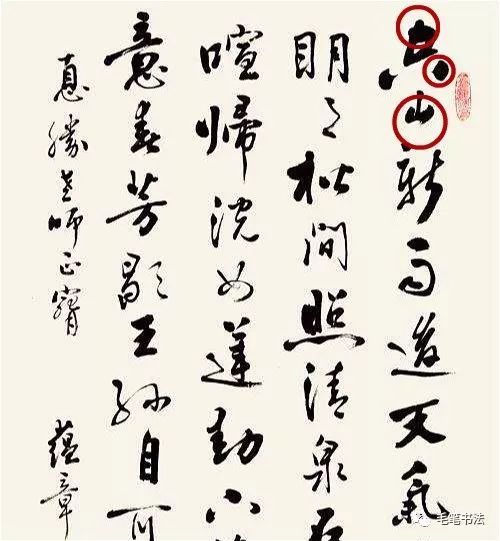 空山新雨後天氣
明月松間照清泉石
喧歸浣女蓮動下
意春芳歇王孫自可
惠勝老師正
蘊章
毛笔书法